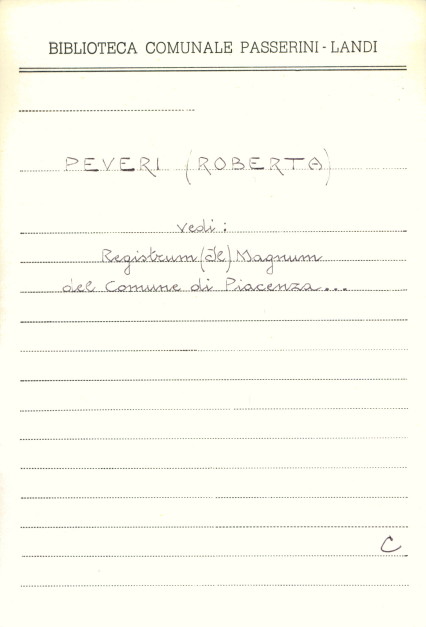 BIBLIOTECA COMUNALE PASSERINI - LANDI
PEVERI (ROBERTA)
vedi:
Registrum (Il) Magnum
del Comune di Piacenza...
C